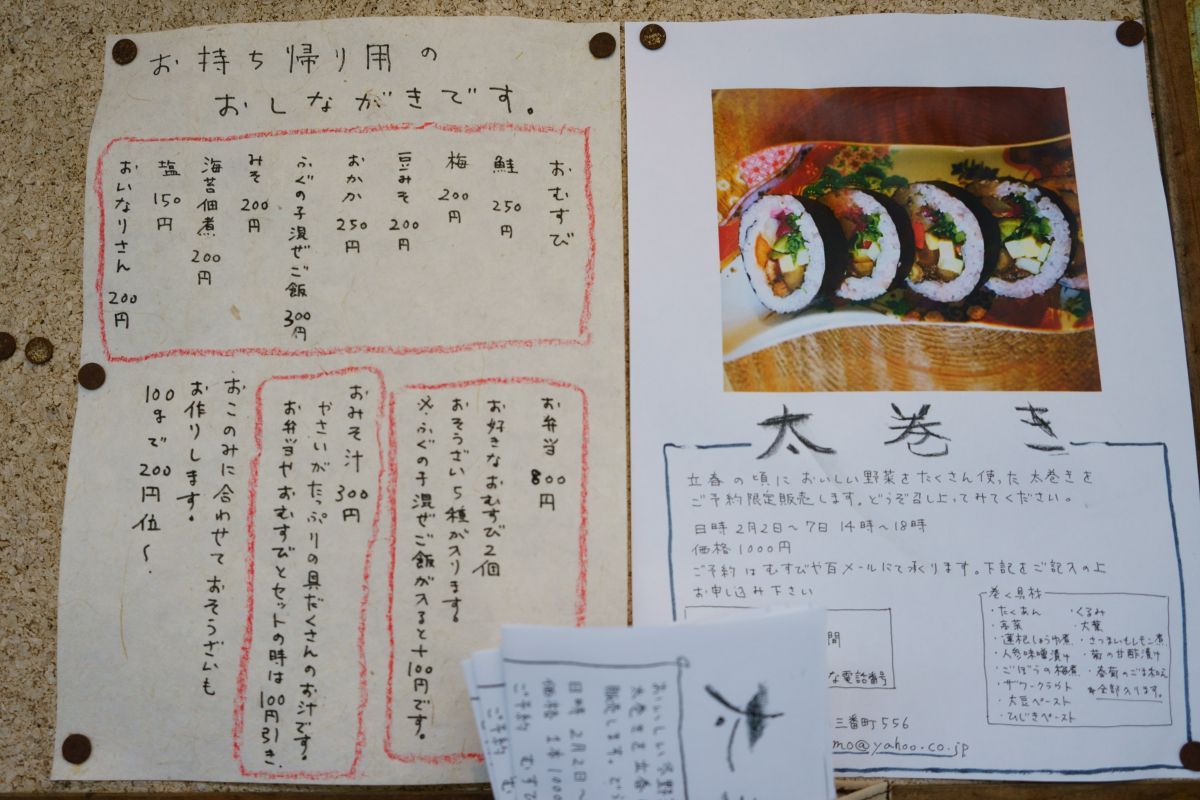 お持ち帰り用の
おしながきです。
おむすび
鮭 250円
梅 200円
豆みそ 200円
おかか 250円
ふぐの子混ぜご飯 300円
みそ 200円
海苔佃煮 200円
塩 150円
おいなりさん 200円
お弁当 800円
お好きなおむすび2個
おそうざい5種が入ります。
※ふぐの子混ぜご飯が入ると+100円です。
おみそ汁 300円
やさいがたっぷりの具だくさんのお汁です。
お弁当やおむすびとセットの時は100円引き。
おこのみに合わせておそうざいも
お作りします。
100gまで200円位〜
太巻き
立春の頃においしい野菜をたくさん使った太巻きを
ご予約限定販売します。どうぞ召し上ってみてください。
日時 2月2日〜7日 14時〜18時
価格 1000円
ご予約はむすびや百メールにて承ります。下記をご記入の上
お申し込み下さい
間
な電話番号
三番町556
mo@yahoo.co.jp
巻く具材
・たくあん
・くるみ
・青菜
・大葉
・蓮根しょうゆ煮
・さつまいもレモン煮
・人参味噌漬け
・菊の甘酢漬け
・ごぼうの梅煮
・春菊のごま和え
・ザワークラウト
*全部入ります。
・大豆ペースト
・ひじきペースト
太
おいしい
太巻きを立春
販売します。ど
日時 2月2日〜
価格 1本1000
ご予約 むすび
ご予約